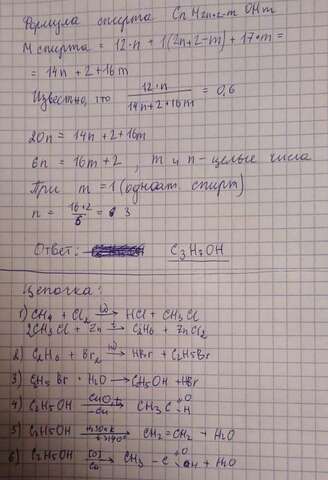 Формула спирта CnH2n+2-m OHm
M спирта = 12·n + 1(2n+2-m) + 17·m =
= 14n + 2 + 16m
Известно, что 12·n / 14n+2+16m = 0,6
20n = 14n + 2 + 16m
6n = 16m + 2 , m и n - целые числа
При m = 1 (одноат. спирт)
n = 16+2 / 6 = 3
Ответ: C3H7OH
Цепочка:
1) CH4 + Cl2 → HCl + CH3Cl
2CH3Cl + Zn → C2H6 + ZnCl2
2) C2H6 + Br2 → HBr + C2H5Br
3) C2H5Br + H2O → C2H5OH + HBr
4) C2H5OH CuO, t → -Cu CH3C =O -H
5) C2H5OH → CH2=CH2 + H2O
6) C2H5OH → CH3-C =O OH + H2O